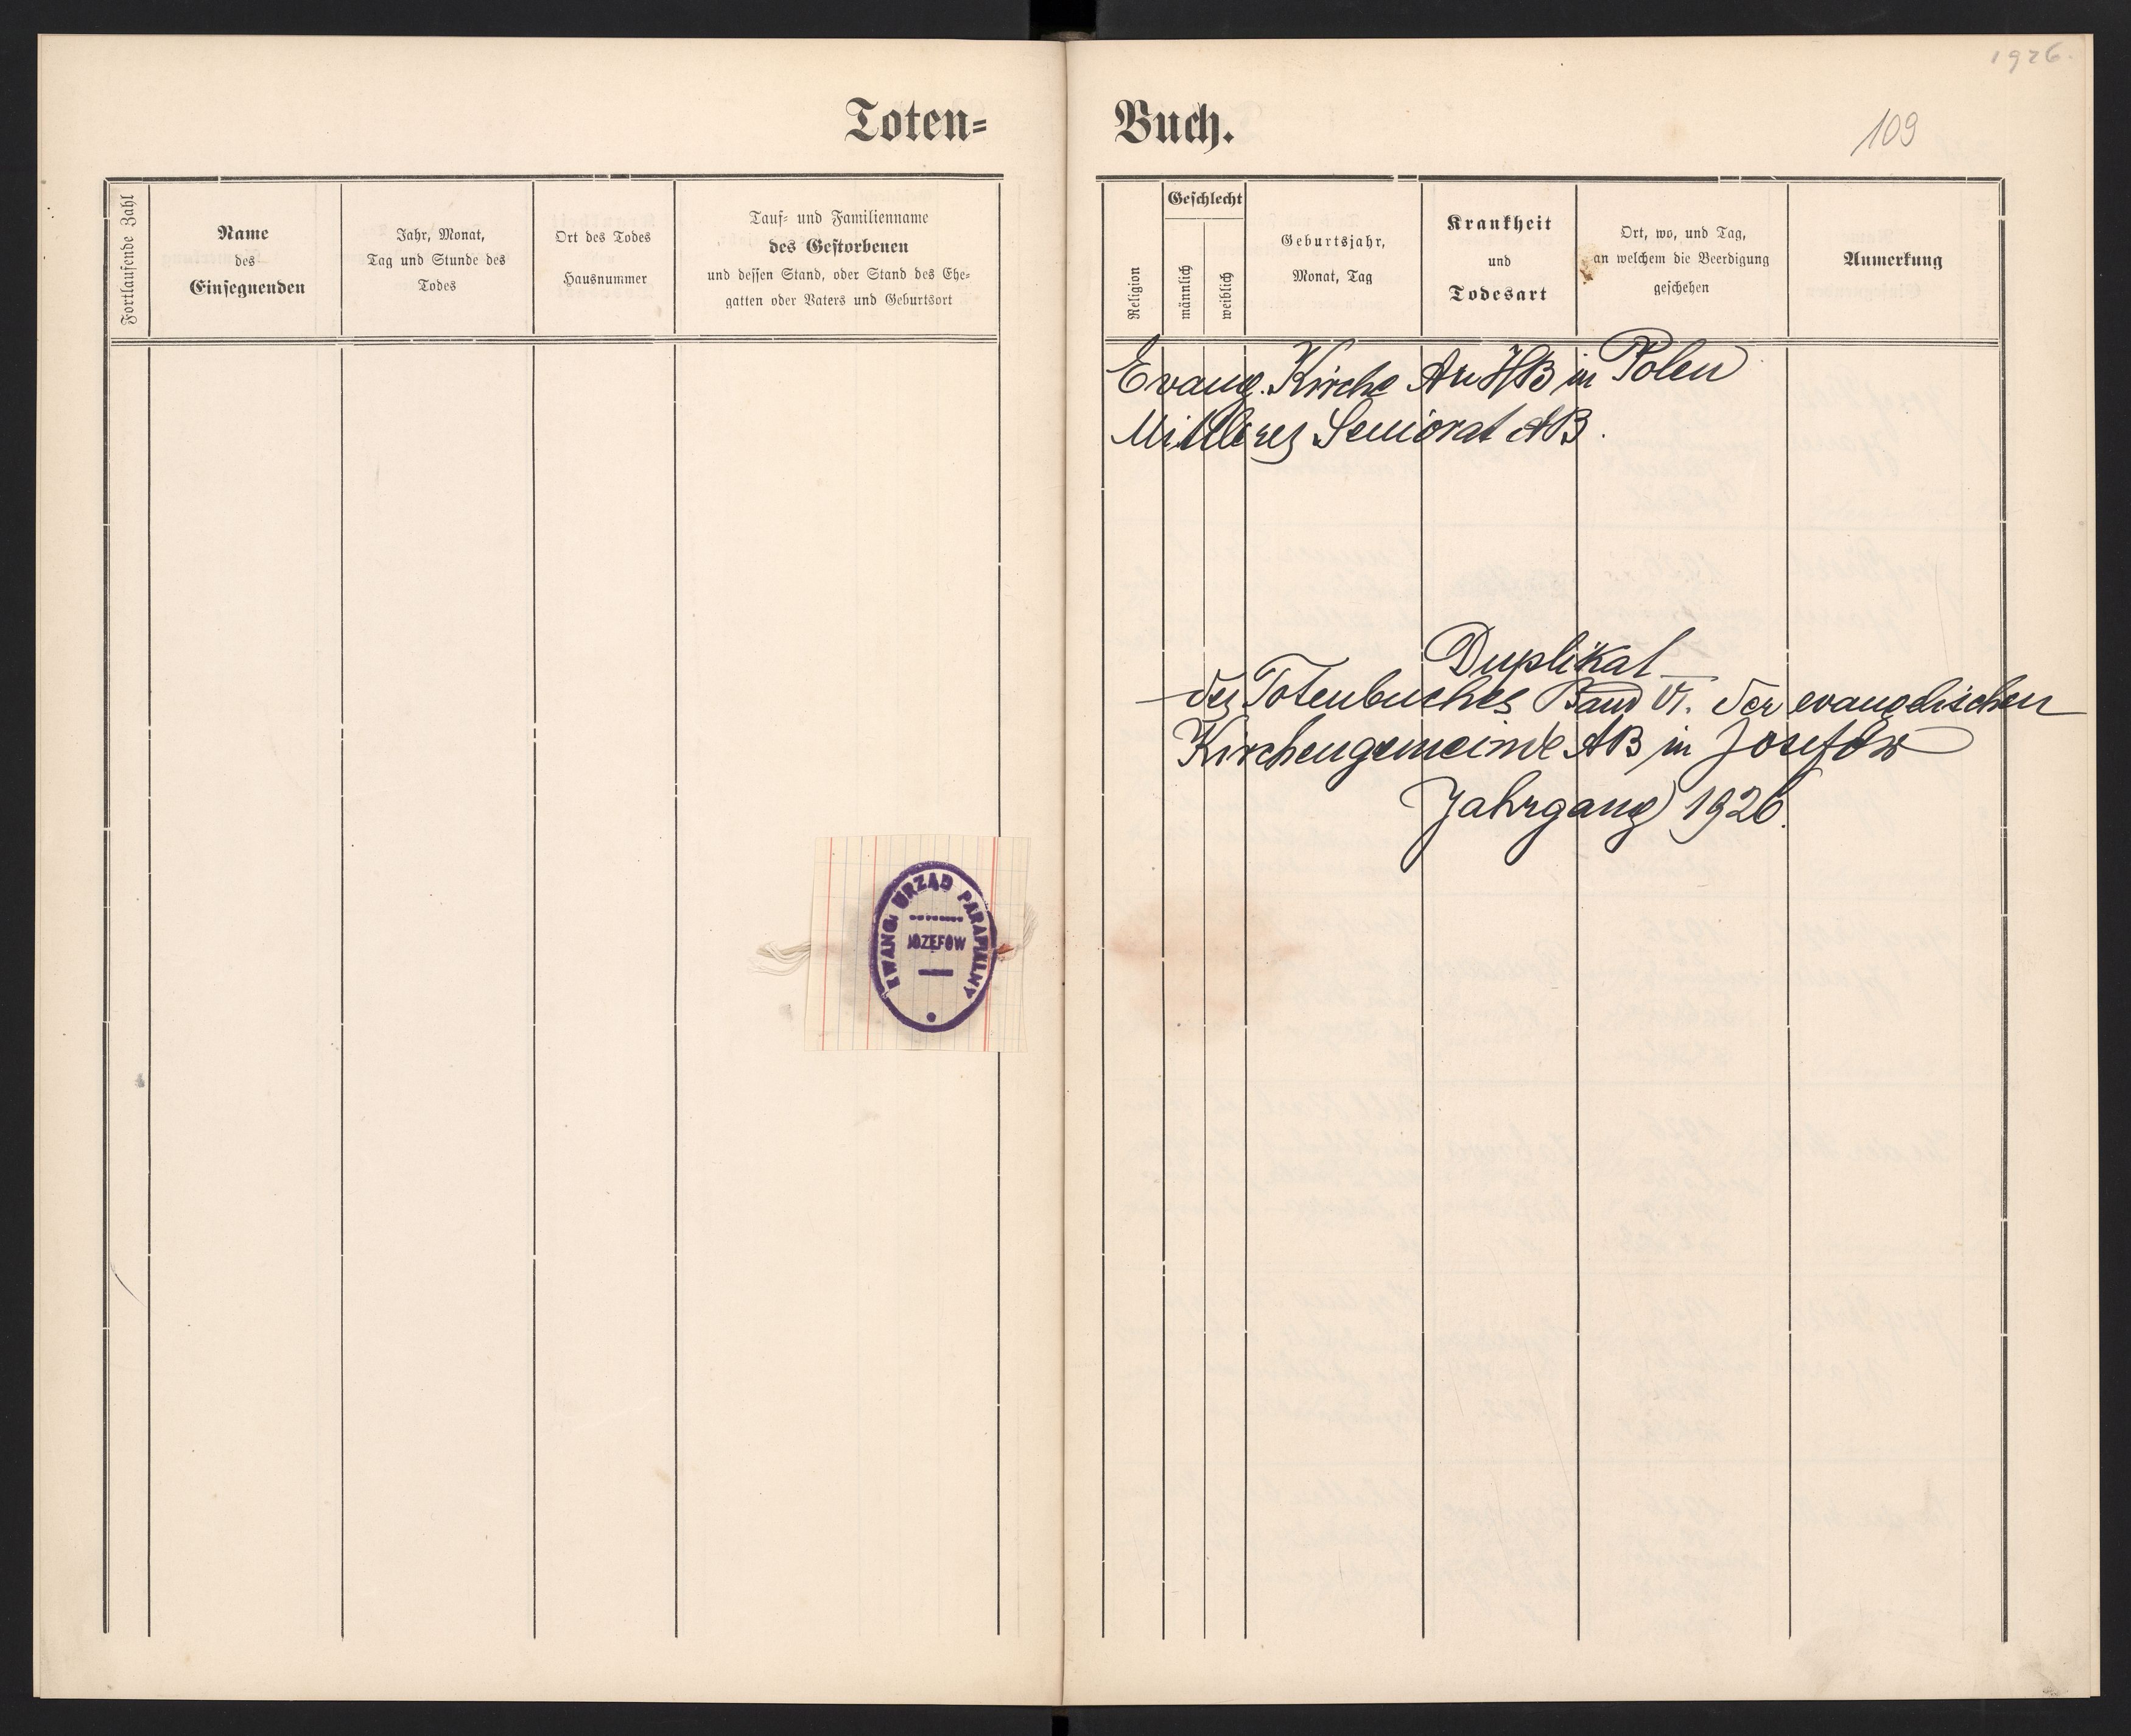 1926.
109
Toten= Buch.
Fortlaufende Zahl
Name
des
Einsegnenden
Jahr, Monat,
Tag und Stunde des
Todes
Ort des Todes
Hausnummer
Tauf= und Familienname
des Gestorbenen
und dessen Stand, oder Stand des Ehe=
gatten oder Vaters und Geburtsort
Religion
Geschlecht
männlich
weiblich
Geburtsjahr,
Monat, Tag
Krankheit
und
Todesart
Ort, wo, und Tag,
an welchem die Beerdigung
geschehen
Anmerkung
Evang. Kirche A u HB in Polen
Mittleres Seniorat AB.
Duplikat
des Totenbuches Band VI. der evangelischen
Kirchengemeinde AB in Josefów
Jahrgang 1926.
EWANG. URZĄD PARAFIALNY
JÓZEFÓW